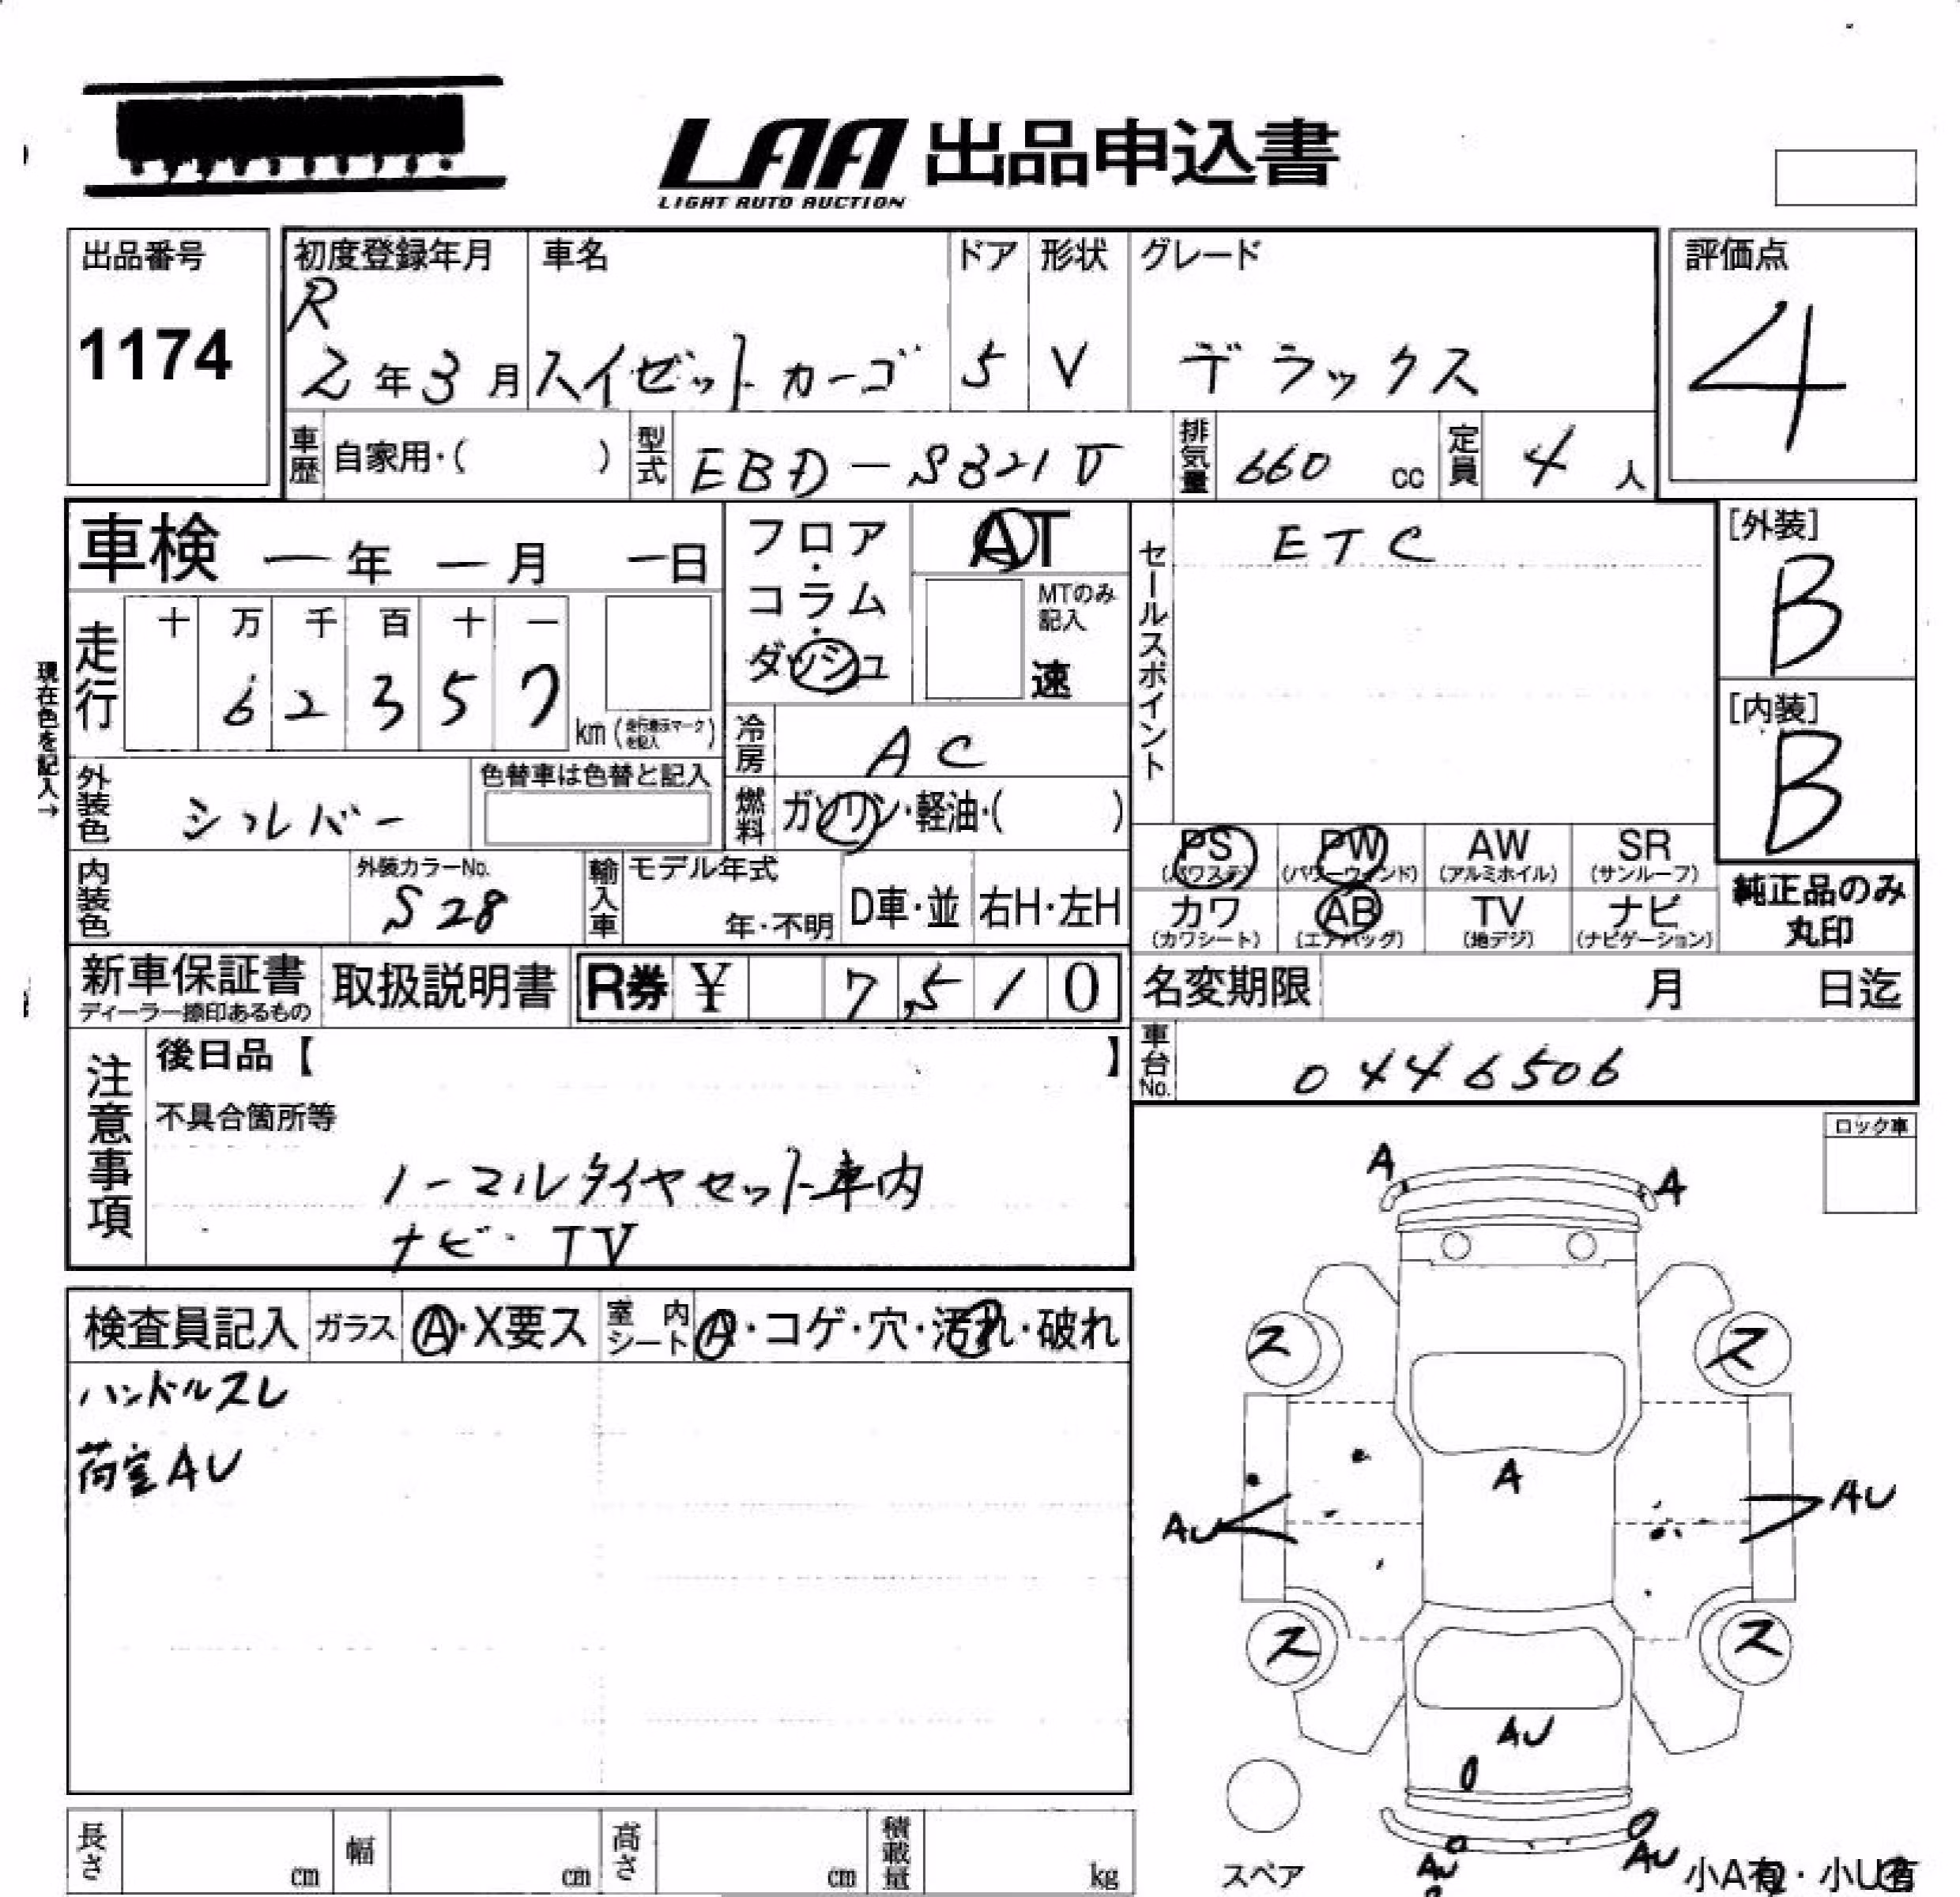 LAA 出品申込書
LIGHT AUTO AUCTION
出品番号
1174
初度登録年月
R
2年3月
車名
スイゼットカーゴ
ドア
5
形状
V
グレード
デラックス
評価点
4
車歴 自家用・( )
型式 EBD-S321V
排気量 660 cc
定員 4 人
車検 ー年 ー月 ー日
フロア・コラム・ダッシュ
AT
MTのみ記入
速
セールスポイント
ETC
[外装]
B
[内装]
B
現在色を記入→
走行
十 万 千 百 十 一
6 2 3 5 7
km(走行表示マークを記入)
冷房 AC
外装色 シルバー
色替車は色替と記入
燃料 ガソリン・軽油・( )
内装色
外装カラーNo.
S28
輸入車
モデル年式
年・不明
D車・並
右H・左H
PS
(パワステ)
PW
(パワーウィンド)
AW
(アルミホイル)
SR
(サンルーフ)
カワ
(カワシート)
AB
(エアバッグ)
TV
(地デジ)
ナビ
(ナビゲーション)
純正品のみ
丸印
新車保証書
ディーラー捺印あるもの
取扱説明書
R券 ¥ 7,510
名変期限 月 日迄
車台No. 0446506
注意事項
後日品【 】
不具合箇所等
ノーマルタイヤセット車内
ナビ・TV
ロック車
検査員記入
ガラス A・X要ス
室内シート A・コゲ・穴・汚れ・破れ
ハンドルスレ
荷室AU
A A
ス ス
A
AU AU
ス ス
AU
AU AU
スペア
小A有・小U有
長さ cm
幅 cm
高さ cm
積載量 kg